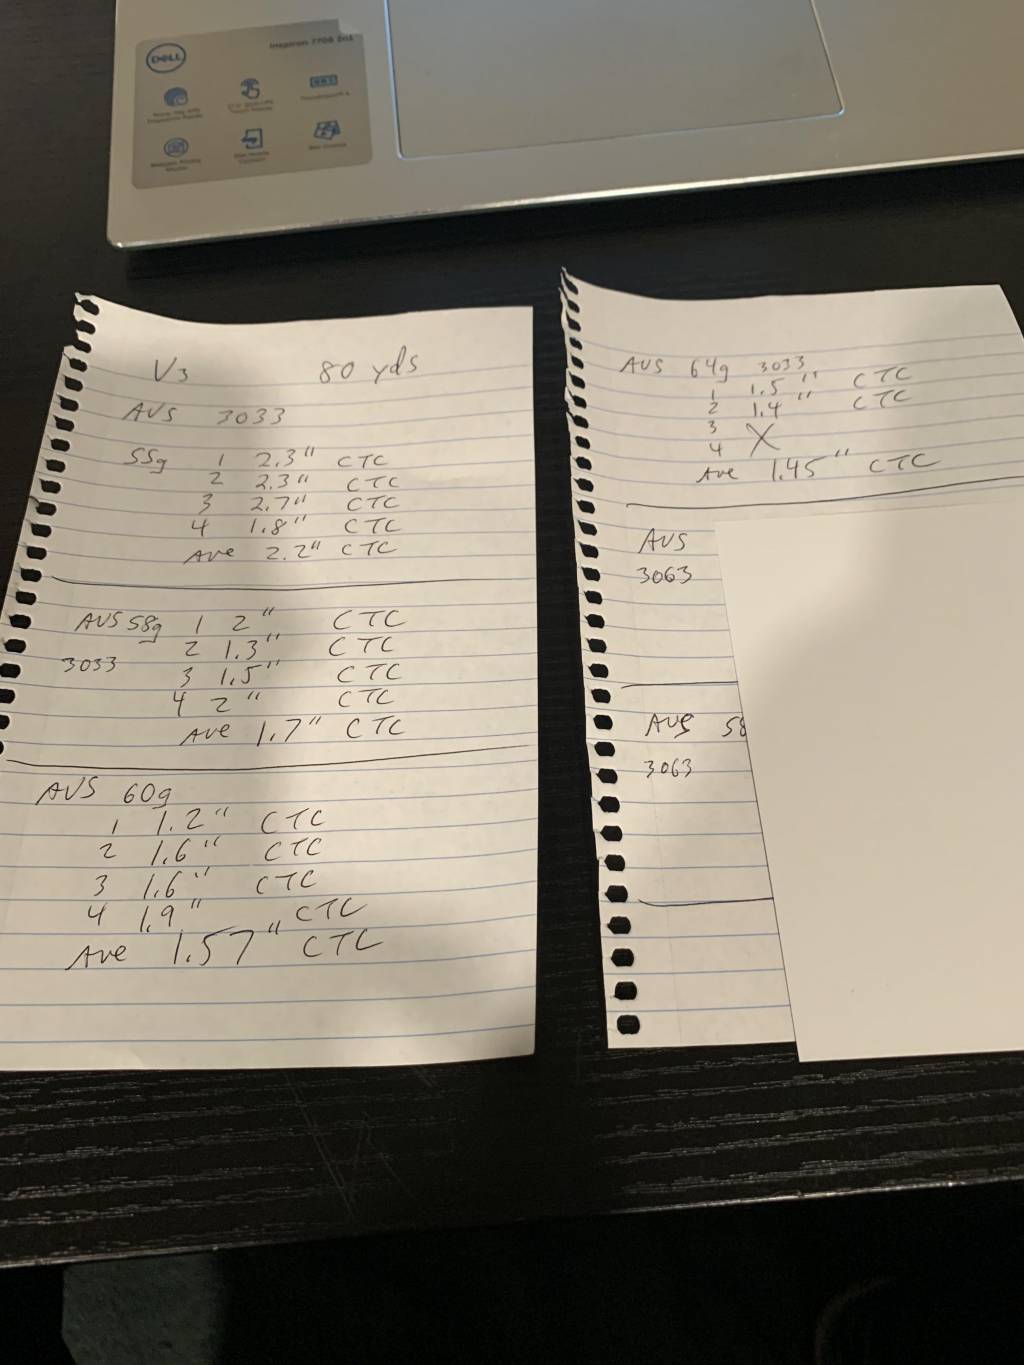 DELL
Inspiron 7706 2n1
V3 80 yds
AVS 3033
55g 1 2.3" CTC
2 2.3" CTC
3 2.7" CTC
4 1.8" CTC
Ave 2.2" CTC
AVS 58g 1 2" CTC
2 1.3" CTC
3033
3 1.5" CTC
4 2" CTC
Ave 1.7" CTC
AVS 60g
1 1.2" CTC
2 1.6" CTC
3 1.6" CTC
4 1.9" CTC
Ave 1.57" CTC
AVS 64g 3033
1 1.5" CTC
2 1.4" CTC
3
4 X
Ave 1.45" CTC
AVS
3063
AVS 58
3063